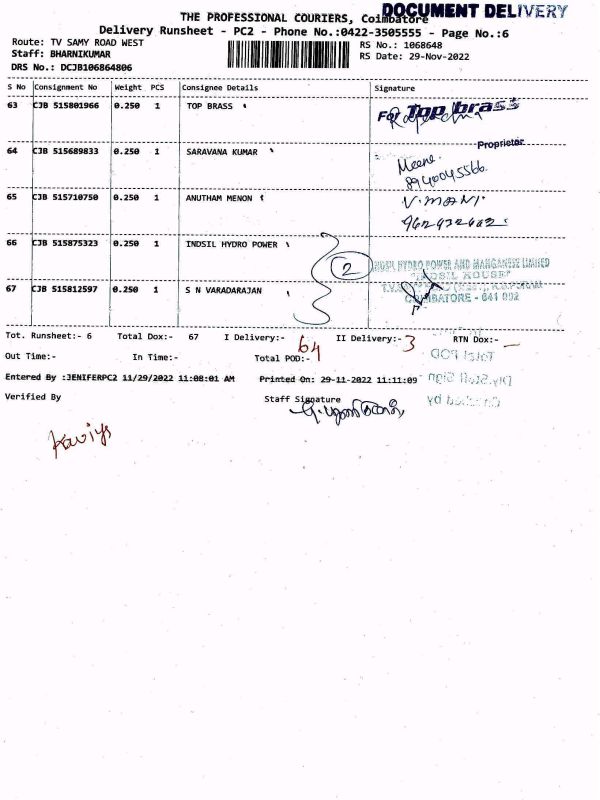 DOCUMENT DELIVERY
THE PROFESSIONAL COURIERS, Coimbatore
Delivery Runsheet - PC2 - Phone No.:0422-3505555 - Page No.:6
Route: TV SAMY ROAD WEST
RS No.: 1068648
Staff: BHARNIKUMAR
RS Date: 29-Nov-2022
DRS No.: DCJB106864806
S No Consignment No Weight PCS Consignee Details Signature
63 CJB 515801966 0.250 1 TOP BRASS
For Top brass
Proprietor
64 CJB 515689833 0.250 1 SARAVANA KUMAR
Meena
8940045566
65 CJB 515710750 0.250 1 ANUTHAM MENON
V. MANI.
66 CJB 515875323 0.250 1 INDSIL HYDRO POWER
2
INDSIL HYDRO POWER AND MANGANESE LIMITED
"INDSIL HOUSE"
67 CJB 515812597 0.250 1 S N VARADARAJAN
COIMBATORE - 641 002
Tot. Runsheet:- 6 Total Dox:- 67 I Delivery:- 64 II Delivery:- 3 RTN Dox:- —
Out Time:- In Time:- Total POD:-
Total POD
Entered By :JENIFERPC2 11/29/2022 11:08:01 AM Printed On: 29-11-2022 11:11:09
Verified By Staff Signature